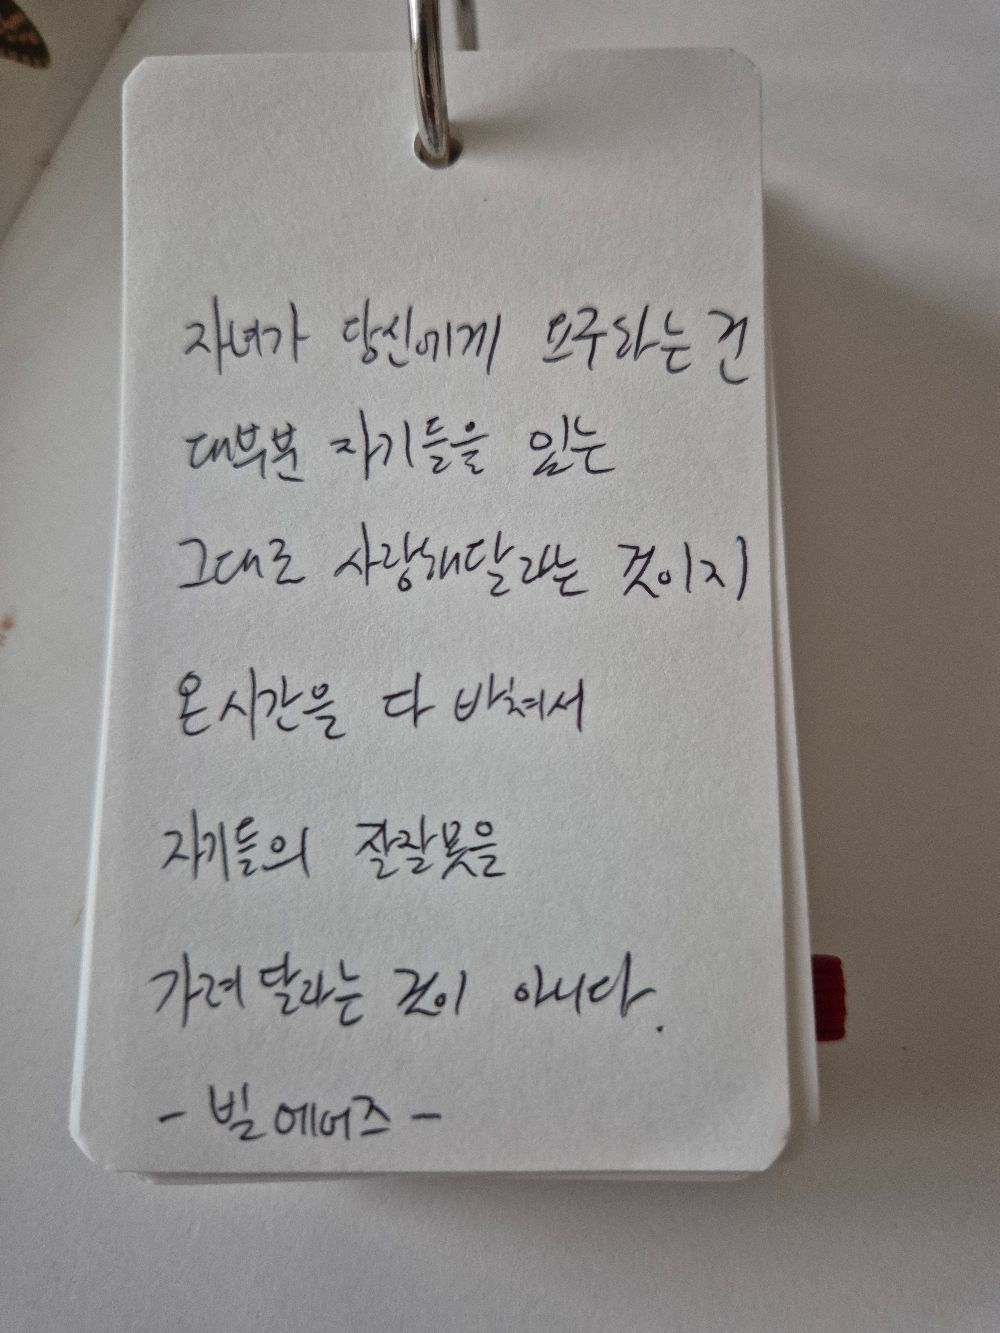 자녀가 당신에게 요구하는 건
대부분 자기들을 있는
그대로 사랑해달라는 것이지
온 시간을 다 바쳐서
자기들의 잘잘못을
가려 달라는 것이 아니다.
- 빌 에어즈 -